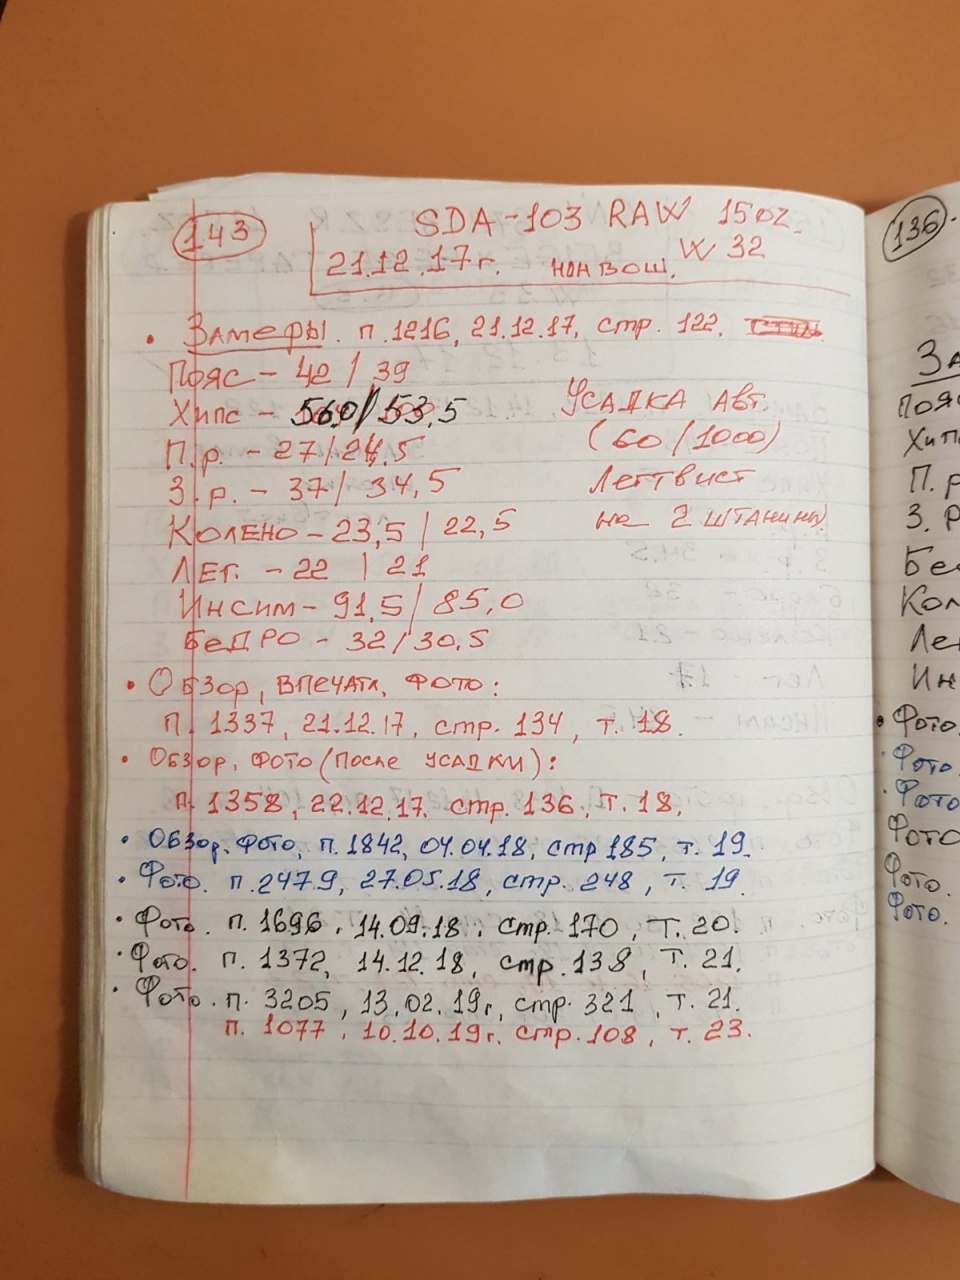 143
SDA-103 RAW 15oz.
21.12.17г. нонвош. W 32
• Замеры. п.1216, 21.12.17, стр. 122.
Пояс - 42 / 39
Хипс - 56,0/53,5
П.р. - 27/24,5
З.р. - 37/ 34,5
Колено - 23,5 / 22,5
Лег. - 22 / 21
Инсим - 91,5 / 85,0
Бедро - 32/30,5
Усадка авт.
(60/1000)
Леггвист
на 2 штанины)
• Обзор, впечатл, фото:
п. 1337, 21.12.17, стр. 134, т. 18.
• Обзор, фото (после усадки):
п. 1358, 22.12.17. стр. 136, т. 18.
• Обзор. Фото, п. 1842, 04.04.18, стр 185, т. 19.
• Фото. п.2479, 27.05.18, стр. 248, т. 19.
• Фото. п. 1696, 14.09.18, стр. 170, т. 20.
• Фото. п. 1372, 14.12.18, стр. 138, т. 21.
• Фото. п. 3205, 13.02.19г, стр. 321, т. 21.
п. 1077, 10.10.19г. стр. 108, т. 23.
136
За
Пояс
Хип
П. р
З. р
Бе
Кол
Ле
Ин
• Фото.
• Фото
• Фото
Фото
Фото.
Фото.